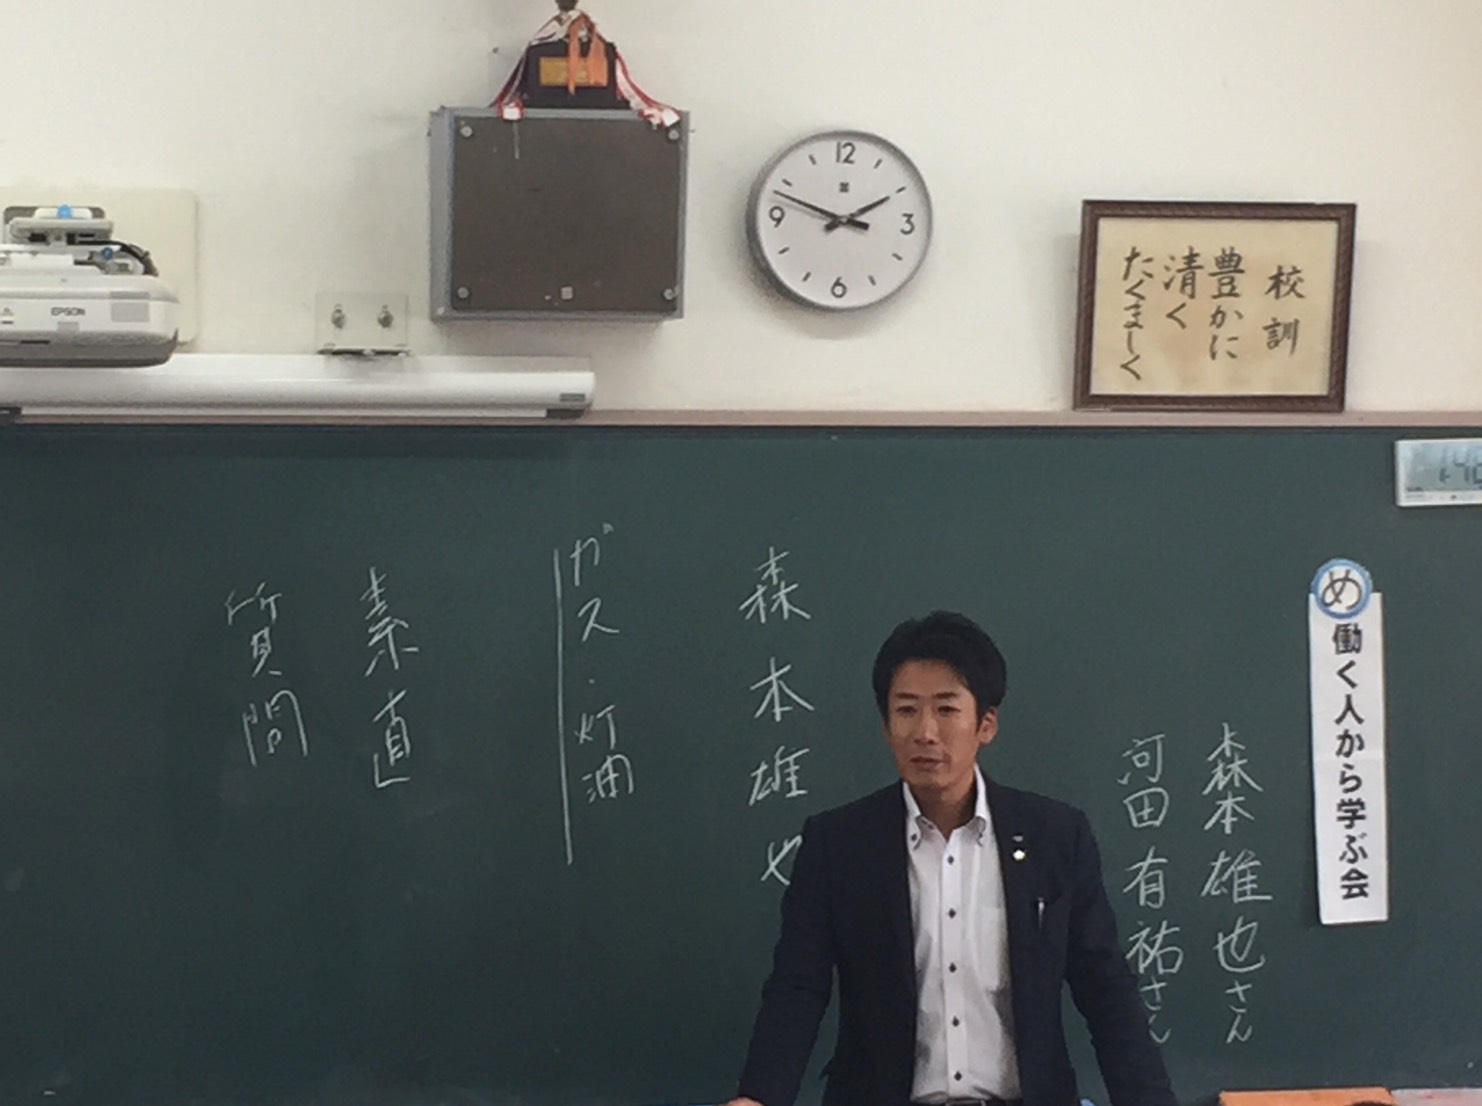 12
3
6
9
EPSON
校訓
豊かに
清く
たくましく
め
働く人から学ぶ会
森本雄也さん
河田有祐さん
森本雄也
ガス・灯油
素直
質問